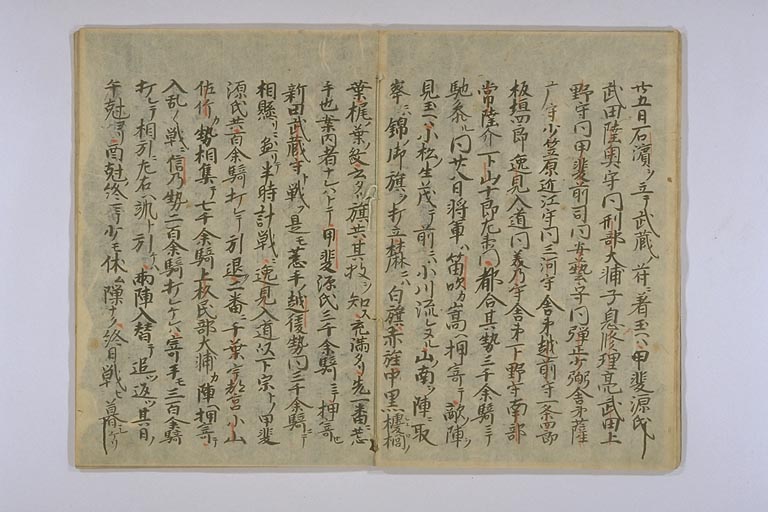 廿五日石濱ヲ立テ武蔵ノ府ニ着玉ヘハ甲斐源氏
武田陸奥守同刑部大輔子息修理亮武田上
野守同甲斐前司同安藝守同弾正少弼舎弟薩
广守小笠原近江守同三河守舎弟越前守一条四郎
板垣四郎逸見入道同美乃守舎弟下野守南部
常陸介下山十郎左衛門都合其勢三千余騎ニテ
馳参ル同廿八日将軍ハ笛吹カ嵩ヘ押寄テ敵ノ陣ヲ
見玉ヘハ小松生茂テ前ニ小川流レタル山ノ南ヲ陣ニ取
峯ニハ錦ノ御旗ヲ打立麓ニハ白旗赤旌中黒㯶櫚
葉梶ノ葉ノ紋云タル旗共其投ヲ知ス充満タリ先一番ニ荒
手也案内者ナレハトテ甲斐源氏三千余騎ニテ押寄
新田武蔵守ト戦フ是モ荒手ノ越後勢同三千余騎ニテ
相懸リニ懸リテ半時計戦ニ逸見入道以下宗トノ甲斐
源氏共百余騎打レテ引退ク二番ニ千葉宇都宮小山
佐竹カ勢相集テ七千余騎上杦民部大浦カ陣ヘ押寄テ
入乱々戦ニ信乃勢二百余騎打レケレハ寄手モ三百余騎
打レテ相引ニ左右ヘ颯ト引引ケハ両陣入替テ追ツ返ツ其日ノ
午尅ヨリ酉尅ノ終マテ少モ休ム隙ナク終日戦ヒ暮シケリ